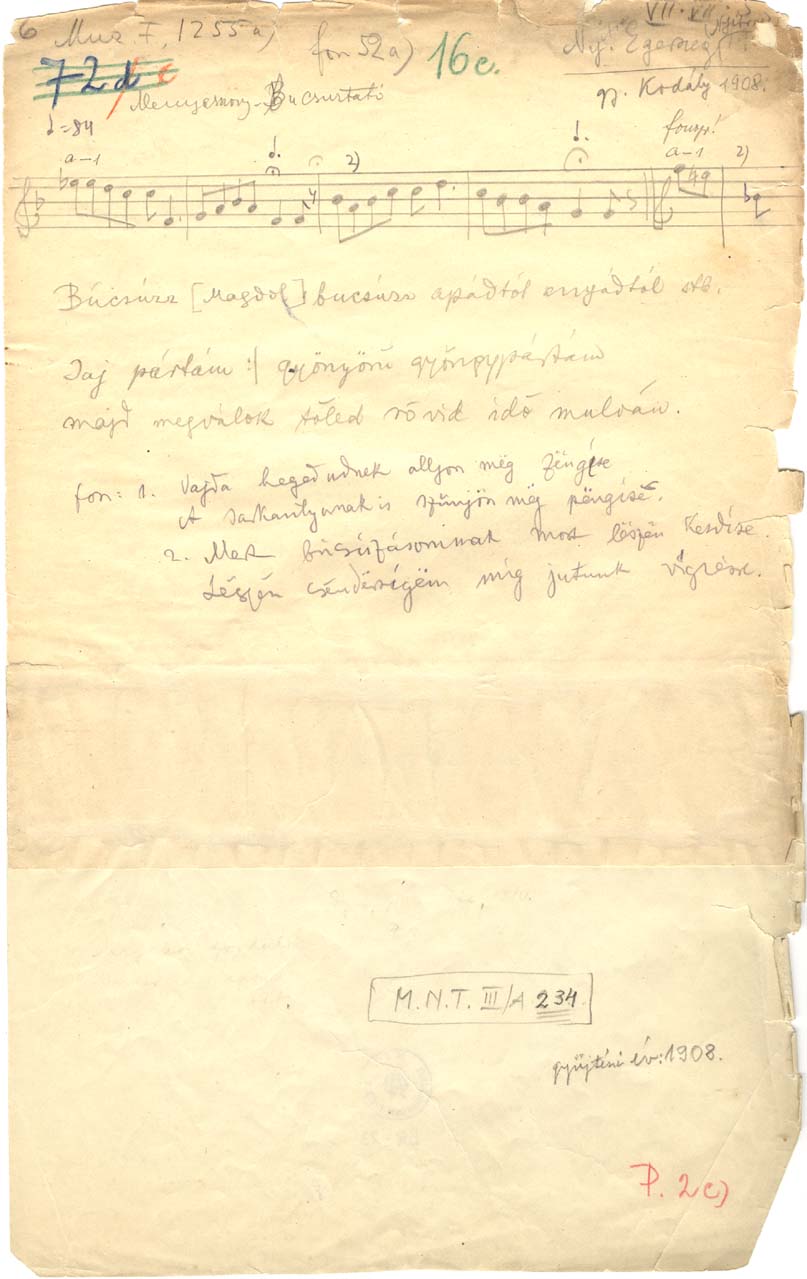 6 Muz. F, 1255 a)
fon 52 a)
16 c.
VII. VII
72 d c
Nyi. Egerszeg
Menyasszony-Bucsuztató
gy. Kodály 1908.
♩=84
a-1
2)
a-1
2)
Búcsúzz [Magdol] bucsúzz apádtól anyádtól stb.
Jaj pártám :| gyönyörü gyöngypártám
majd megválok tőled rövid idő mulván.
fon: 1. Vajda hegedüdnek álljon mëg zëngése
A sarkantyunak is szünjön mëg pëngése.
2. Mert búcsúzásomnak most lészën kezdése
Lészën csëndësségëm míg jutunk végzésse.
M.N.T. III/A 234
gyűjtési év: 1908.
P. 2c)